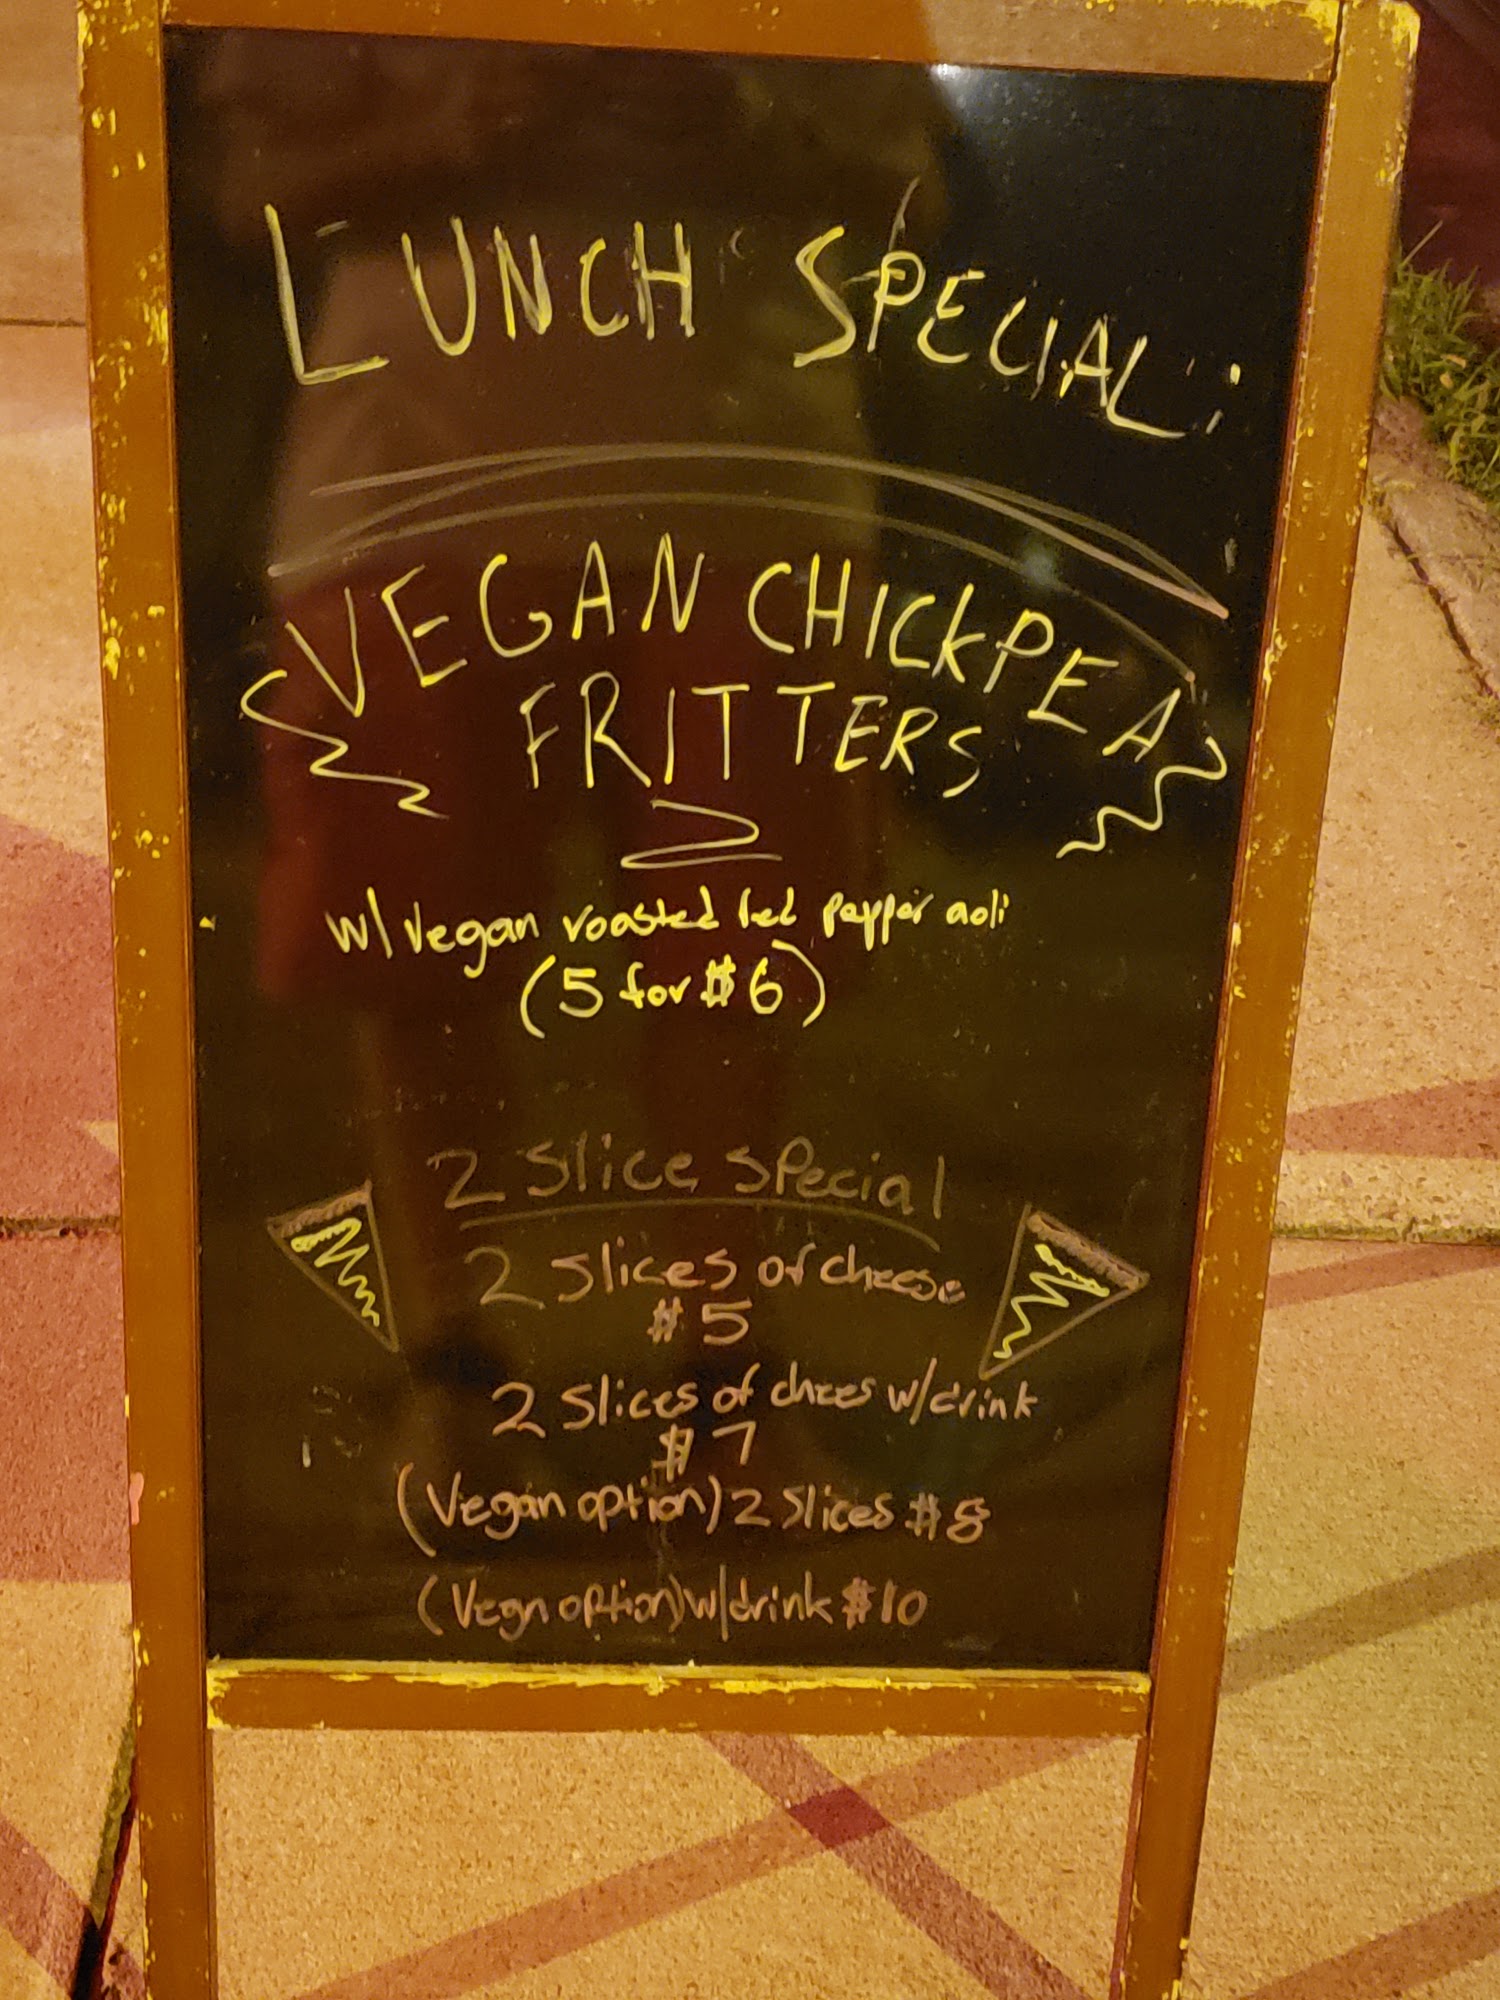 LUNCH SPECIAL:
VEGAN CHICKPEA
FRITTERS
w/ vegan roasted red pepper aoli
(5 for $6)
2 Slice Special
2 Slices of cheese
$5
2 Slices of chees w/drink
$7
(Vegan option) 2 Slices $8
(Vegn option) w/drink $10